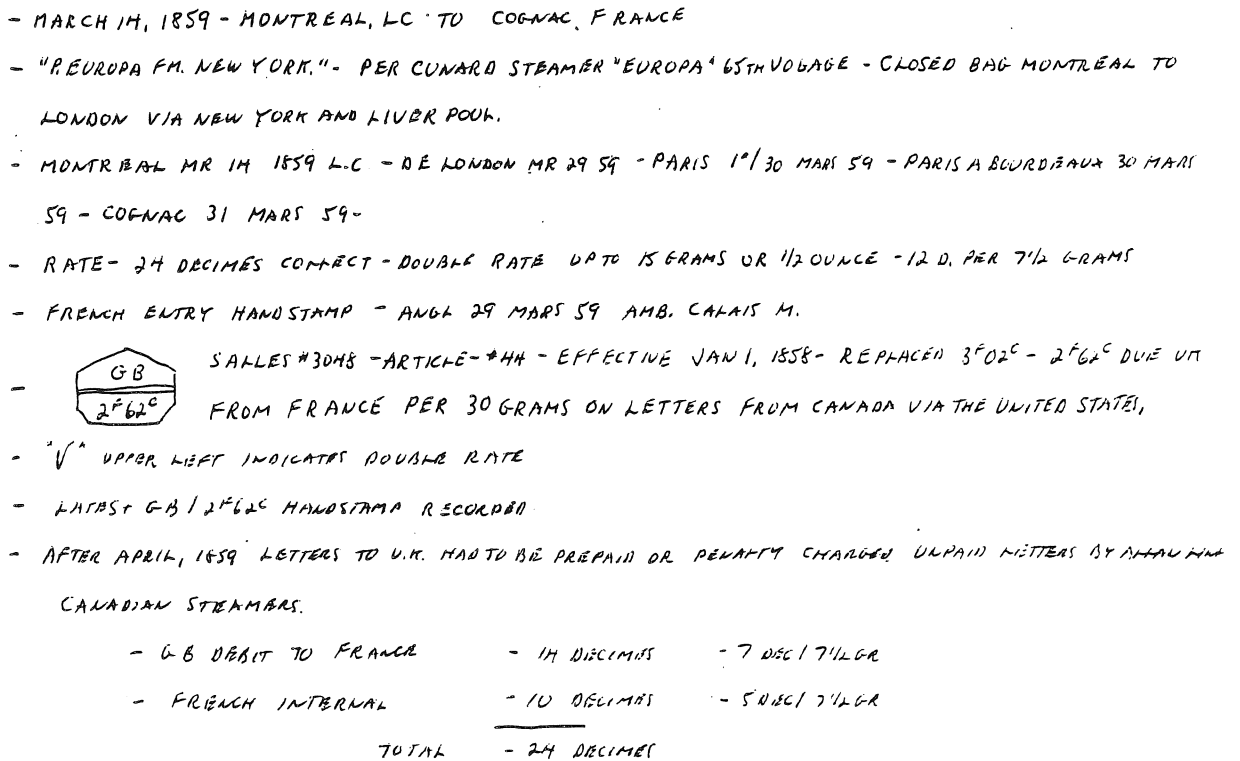 - MARCH 14, 1859 - MONTREAL, LC TO COGNAC, FRANCE
- "P. EUROPA FM. NEW YORK." - PER CUNARD STEAMER "EUROPA" 65TH VOYAGE - CLOSED BAG MONTREAL TO
LONDON VIA NEW YORK AND LIVERPOOL.
- MONTREAL MR 14 1859 L.C - DE LONDON MR 29 59 - PARIS 1º/30 MARS 59 - PARIS A BOURDEAUX 30 MARS
59 - COGNAC 31 MARS 59 -
- RATE - 24 DECIMES CORRECT - DOUBLE RATE UP TO 15 GRAMS OR 1/2 OUNCE - 12 D. PER 7 1/2 GRAMS
- FRENCH ENTRY HANDSTAMP - ANGL 29 MARS 59 AMB. CALAIS M.
GB
2F62C
SALLES #3048 - ARTICLE - #44 - EFFECTIVE JAN 1, 1858 - REPLACED 3F02C - 2F62C DUE UK
- FROM FRANCE PER 30 GRAMS ON LETTERS FROM CANADA VIA THE UNITED STATES,
- "V" UPPER LEFT INDICATES DOUBLE RATE
- LATEST GB / 2F62C HANDSTAMP RECORDED
- AFTER APRIL, 1859 LETTERS TO U.K. HAD TO BE PREPAID OR PENALTY CHARGED UNPAID LETTERS BY
CANADIAN STEAMERS.
- GB DEBIT TO FRANCE - 14 DECIMES - 7 DEC / 7 1/2 GR
- FRENCH INTERNAL - 10 DECIMES - 5 DEC / 7 1/2 GR
TOTAL - 24 DECIMES